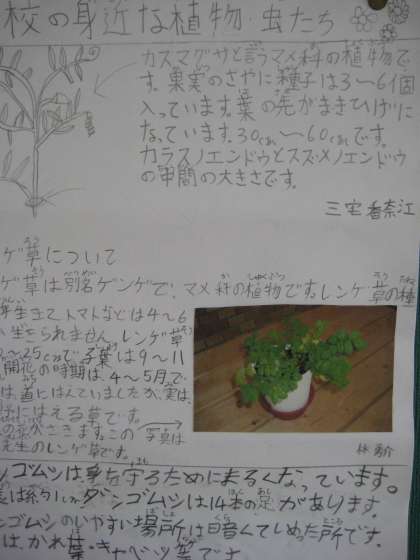 校の身近な植物・虫たち
カスマグサと言うマメ科の植物で
す。果実のさやに種子は3〜6個
入っています。葉の先がまきひげに
なっています。30cm〜60cmです。
カラスノエンドウとスズメノエンドウ
の中間の大きさです。
三宅香奈江
ゲ草について
ゲ草は別名ゲンゲで、マメ科の植物です。レンゲ草の種
年生きて、トマトなどは4〜6
生きられません。レンゲ草
〜25cmで、子葉は9〜11
開花の時期は、4〜5月で
は、道にはんていましたが、実は、
にはえる草です。
がさきます。この写真は
先生のレンゲ草です。
林 勇介
ンゴムシは身を守るためにまるくなっています。
は約1cmダンゴムシは14本の足があります。
ンゴムシのいやすい場所は暗くていめった所です。
は、かれ葉・キャベツ等です